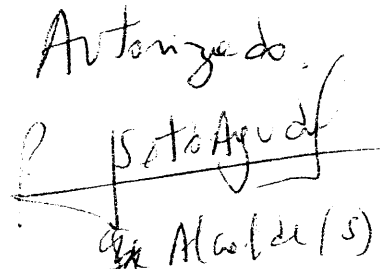 Autorizado.
Soto Agudo
Alcalde (S)